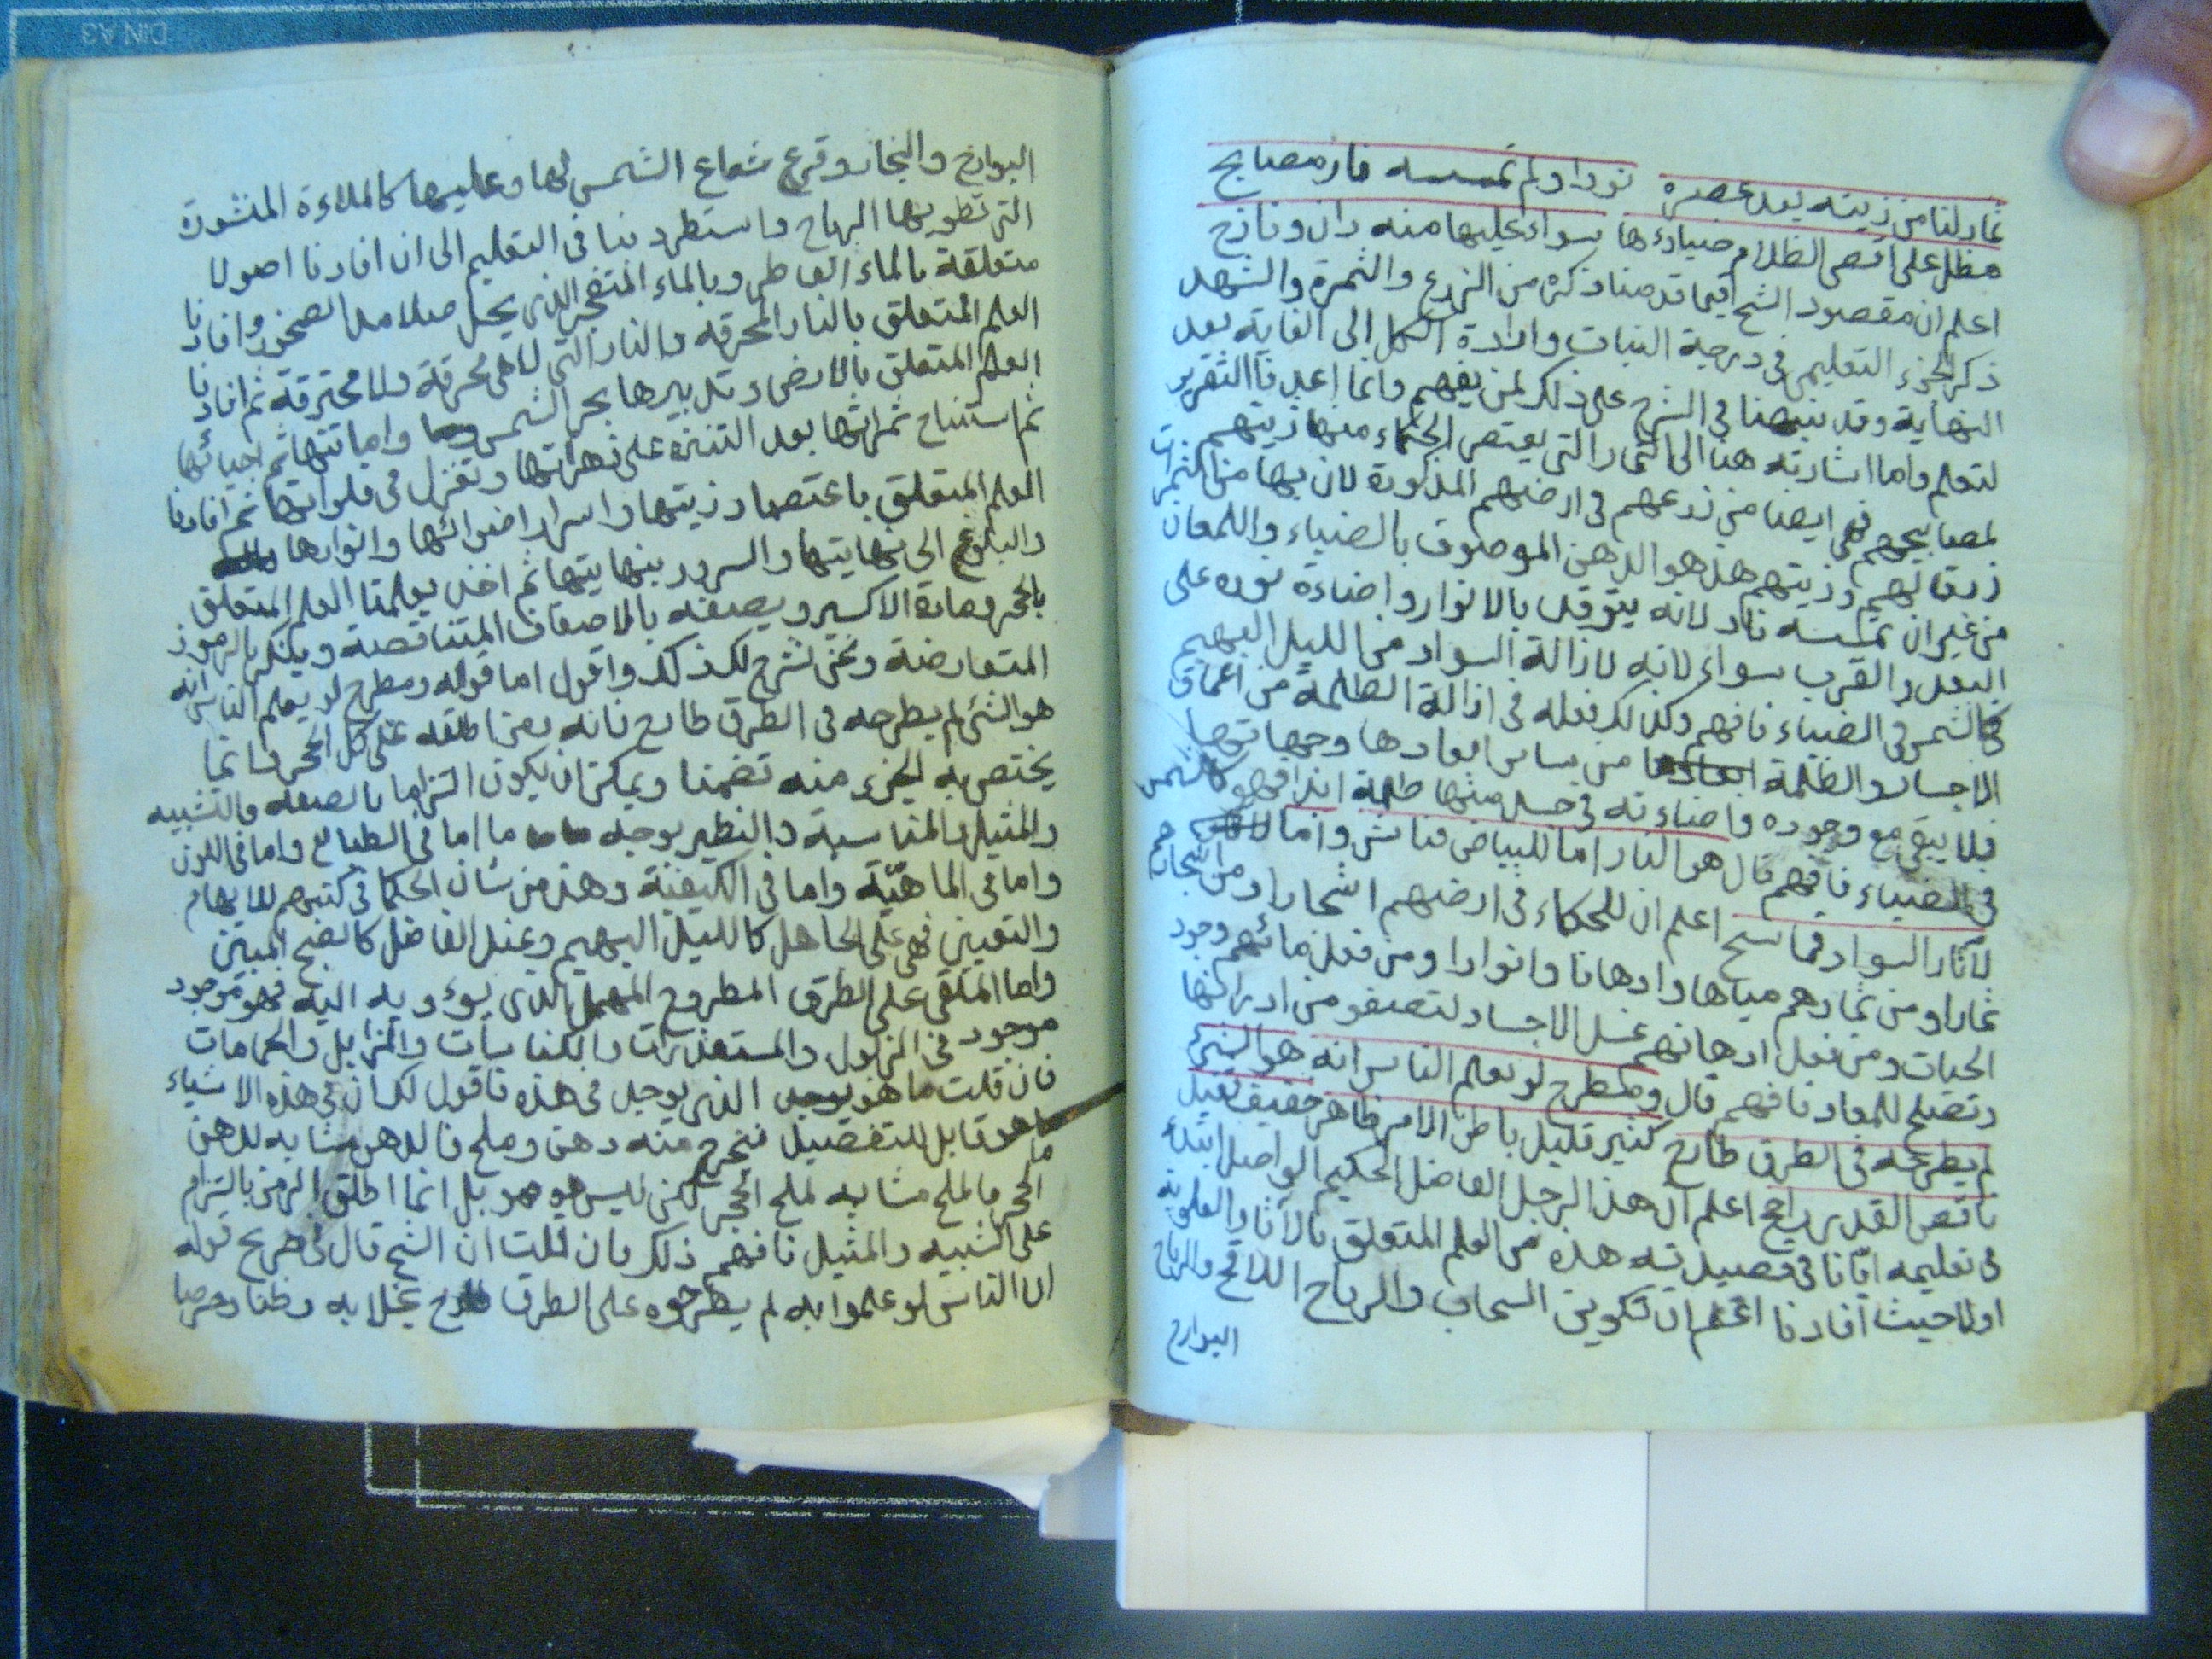 ثمار لنا من زيته بعد عصره نورا ولم تمسسه نار مصابح
مطل على اقصى الظلام ضياءها سواء عليها منه دان ونازح
اعلم ان مقصود الشيخ فيما قدمنا ذكره من الزرع والثمرة والشهد
ذكر الجزء التعليمى فى درجة النبات وارادة الكل الى الغاية بعد
النهاية وقد نبهنا فى الشرح على ذلك لمن يفهم وانما اعدنا التقرير
لتعلم واما اشارته هنا الى الثمار التى يعتصر الحكماء منها زيتهم
لمصابيحهم فهى ايضا من زرعهم فى ارضهم المذكورة لان بها من الثمرات
رزقا لهم وزيتهم هذا هو الدهن الموصوف بالضياء واللمعان
من غير ان تمسسه نار لانه يتوقد بالانوار واضاءة نوره على
البعد والقرب سواء لانه لازالة السواد من الليل البهيم
كالشمس فى الضياء فافهم وكذلك فعله فى ازالة الظلمة من اعماق
الاجساد والظلمة من سائر ابعادها وجهاتها
فلا يبقى مع وجوده واضاءته فى جسد منها ظلمة ابدا فهو كالشمس
فى الضياء فافهم قال هو النار اما للبياض فناشر واما
لآثار السواد فماسح اعلم ان للحكماء فى ارضهم اشجارا ومن اشجارهم
ثمارا ومن ثمارهم مياها وادهانا وانوارا ومن فعل مائهم وجود
الحياة ومن فعل ادهانهم غسل الاجساد لتصفو من ادرانها
وتصلح للمعاد فافهم قال ومطرح لو يعلم الناس انه هو الشئ
لم يطرحه فى الطرق طارح كثير قليل باطن الامر ظاهر خفيف ثقيل
ناقص القدر راجح اعلم ان هذا الرجل الفاضل الحكيم الواصل ابتدا
فى تعليمه ايانا فى قصيدته هذه من العلم المتعلق بالآثار العلوية
اولا حيث افادنا اعلم ان تكوين السحاب والرياح اللاقح والرياح
البوارح
البوارح والبخار وقرع شعاع الشمس لها وعليها كالملاءة المنشورة
التى تطويها الرياح واستطرد بنا فى التعليم الى ان افادنا اصولا
متعلقة بالماء القاطر وبالماء المتفجر الذى يحل صلامد الصخور وافادنا
العلم المتعلق بالنار المحرقة والنار التى لا هى محرقة ولا محترقة ثم افادنا
العلم المتعلق بالارض وتدبيرها بحر الشمس واماتتها ثم احيائها
ثم استنتاج ثمراتها بعد التنزه على زهراتها وتغزل فى فلواتها ثم افادنا
العلم المتعلق باعتصار زيتها واسرار اضوائها وانوارها
والبلوغ الى نهايتها والسرور بنهايتها ثم اخذ يعلمنا العلم المتعلق
بالحجر ومادة الاكسير ويصفه بالاوصاف المتناقضة ويذكر بالرموز
المتعارضة ونحن نشرح لك ذلك واقول اما قوله ومطرح لو يعلم الناس انه
هو الشئ لم يطرحه فى الطرق طارح فانه رمز اطلقه على كل الحجر وانما
يختص به الجزء منه تضمنا ويمكن ان يكون التزاما بالصفة والتشبيه
والمثيل والمناسبة والنظير بوجه ما اما فى الطبائع واما فى اللون
واما فى الماهيّة واما فى الكيفية وهذا من شان الحكما فى كتبهم للابهام
والتعيين فهى على الجاهل كالليل البهيم وعند الفاضل كالصبح المبين
واما الملقى على الطرق المطروح المهمل الذى يوء وبه اليه فهو موجود
موجود فى الزبول والمستقذرات والكناسات والمزابل والحمامات
فان قلت ما هو الذى يوجد فى هذه فاقول لك ان فى هذه الاشياء
ما هو قابل للتفصيل فنخرج منه دهن وملح فالدهن مشابه لدهن
الحجر والملح مشابه لملح الحجر لكن ليس هو هو بل انما اطلق الرمز بالتزام
على الشبيه والمثيل فافهم ذلك فان قلت ان الشيخ قال فى صريح قوله
ان الناس لو علموا به لم يطرحوه على الطرق طارح بخلا به وظنا وحرصا